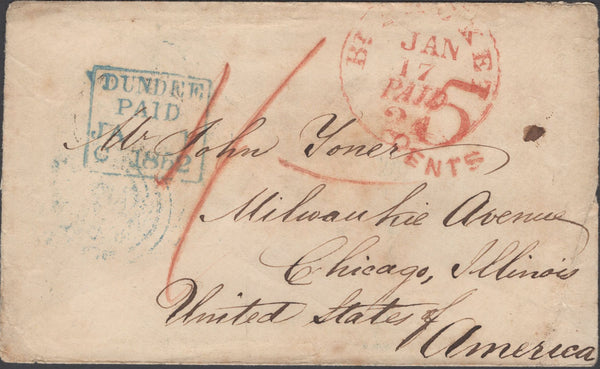 DUNDEE
PAID
JA 1
C 1852
JAN
17
PAID
24
CENTS
5
1/
Mr John Toner
Milwaukie Avenue
Chicago, Illinois
United States of
America